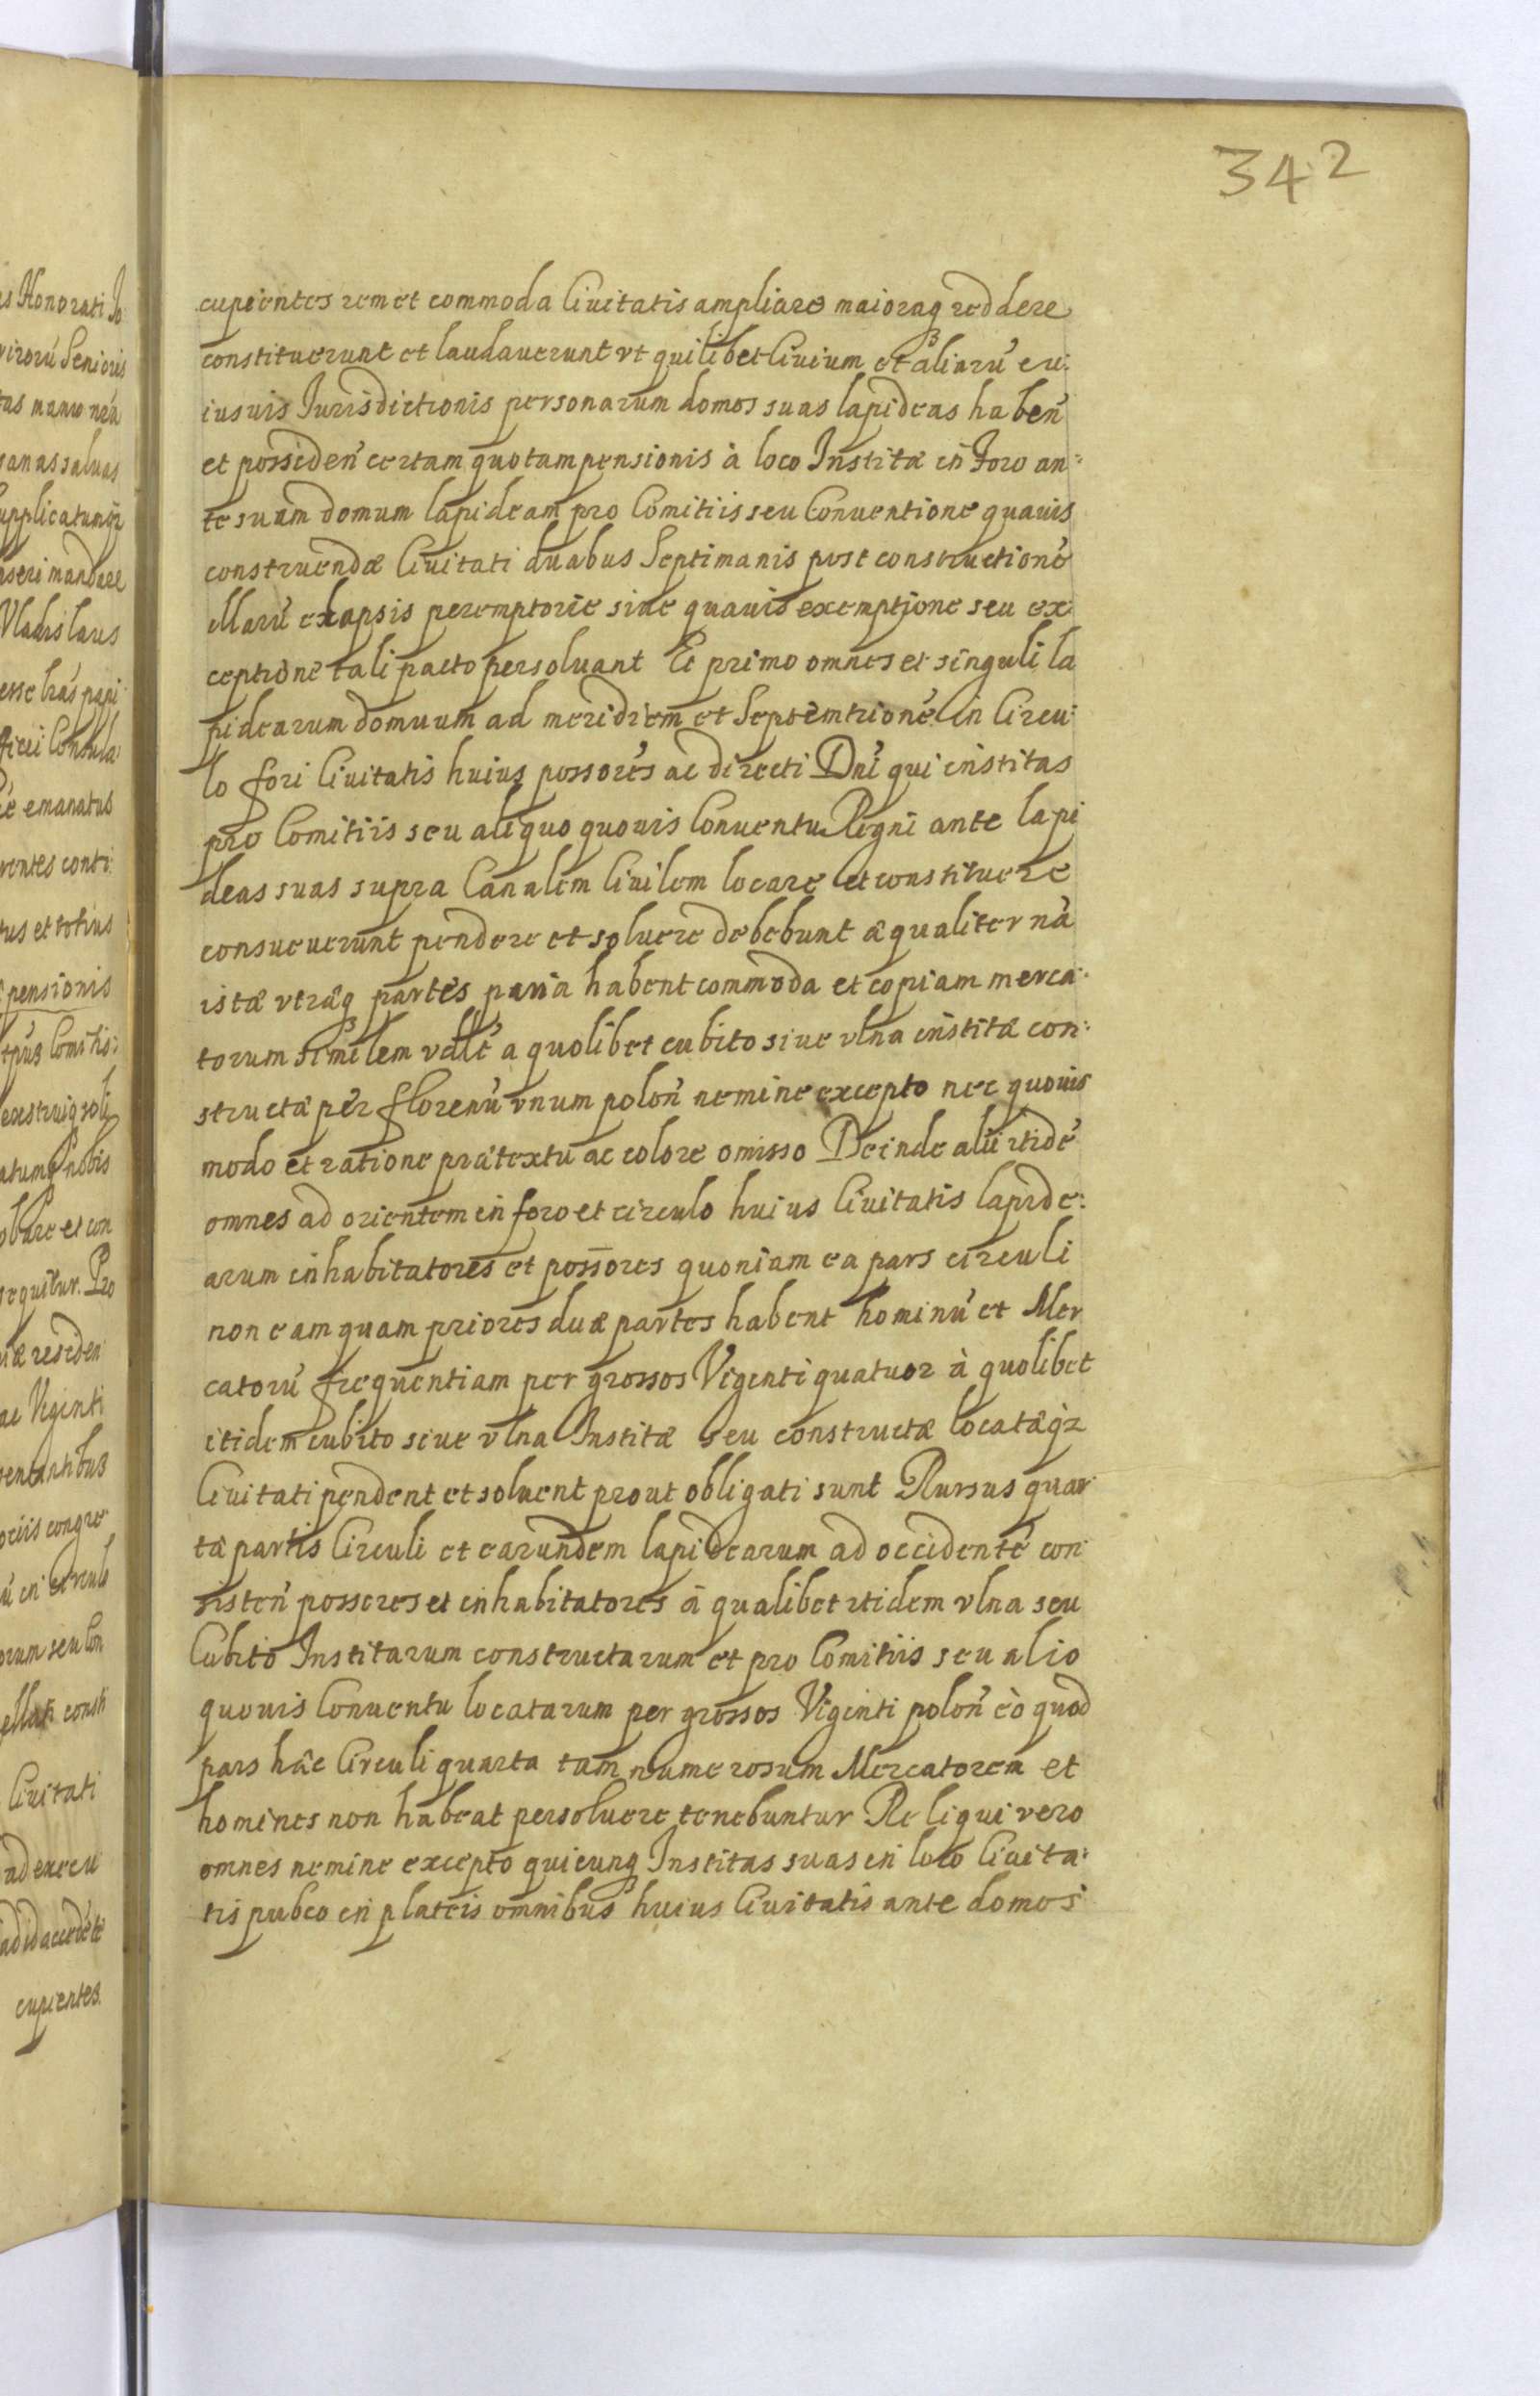 342
cupientes rem et commoda Ciuitatis ampliare maioraq3 reddere
constituerunt et laudauerunt vt quilibet Ciuium et aliarū cu:
iusuis Jurisdictionis personarum domos suas lapideas haben̄
et possiden̄ certam quotam pensionis à loco Institæ in Foro an:
te suam domum lapideam pro Comitiis seu Conuentione quauis
construendæ Ciuitati duabus Septimanis post constructionē
illarū elapsis peremptorie sine quauis exemptione seu ex
ceptione tali pacto persoluant Et primo omnes et singuli la
pidearum domuum ad meridiem et Septemtrionē in Circu:
lo fori Ciuitatis huius possores ac directi Dn̄i qui institas
pro Comitiis seu aliquo quouis Conuentu Regni ante lapi
deas suas supra Canalem Ciuilem locare et constituere
consueuerunt pendere et soluere debebunt æqualiter nā
istæ vtræq3 partes paria habent commoda et copiam merca:
torum similem vdlt́ a quolibet cubito siue vlna institæ con:
structæ per florenū vnum polon̄ nemine excepto nec quouis
modo et ratione prætextu ac colore omisso Deinde alii itidē
omnes ad orientem in foro et circulo huius Ciuitatis lapide:
arum inhabitatores et possores quoniam ea pars circuli
non eam quam priores duæ partes habent hominū et Mer
catorū frequentiam per grossos Viginti quatuor à quolibet
itidem cubito siue vlna Institæ seu constructæ locatæq3
Ciuitati pendent et soluent prout obligati sunt Rursus quar
tæ partis Circuli et earundem lapidearum ad occidentē con
sisten̄ possores et inhabitatores à qualibet itidem vlna seu
Cubito Institarum constructarum et pro Comitiis seu alio
quouis Conuentu locatarum per grossos Viginti polon̄ eò quod
pars hæc Circuli quarta tam numerosum Mercatorem et
homines non habeat persoluere tenebuntur Reliqui vero
omnes nemine excepto quicunq3 Institas suas in loco Ciuita:
tis pubco in plateis omnibus huius Ciuitatis ante domos
Honorati
Senioris
saluas
Vladislaus
emanatus
et totius
pensionis
nobis
et con
sequitur. Pro
ac Viginti
Ciuitati
cupientes.